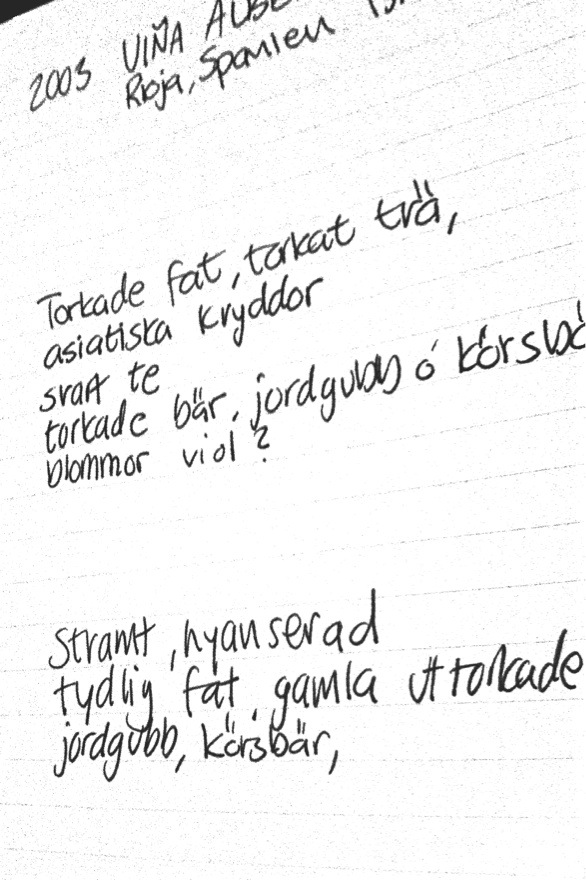 2003 VIÑA
Rioja, Spanien
Torkade fat, torkat trä,
asiatiska kryddor
svart te
torkade bär, jordgubb ó
blommor viol?
Stramt, nyanserad
tydlig fat, gamla uttorkade
jordgubb, körsbär,